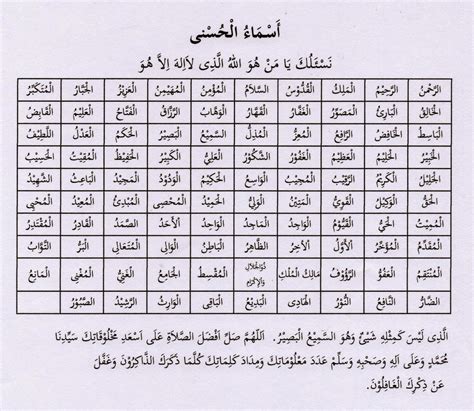 أَسْمَاءُ الْحُسْنٰى
نَسْئَلُكَ يَا مَنْ هُوَ اللهُ الَّذِى لاَاِلهَ اِلاَّ هُوَ
الرَّحْمٰنُ الرَّحِيْمُ الْمَلِكُ الْقُدُّوْسُ السَّلاَمُ الْمُؤْمِنُ الْمُهَيْمِنُ الْعَزِيْزُ الْجَبَّارُ الْمُتَكَبِّرُ
الْخَالِقُ الْبَارِئُ الْمُصَوِّرُ الْغَفَّارُ الْقَهَّارُ الْوَهَّابُ الرَّزَّاقُ الْفَتَّاحُ الْعَلِيْمُ الْقَابِضُ
الْبَاسِطُ الْخَافِضُ الرَّافِعُ الْمُعِزُّ الْمُذِلُّ السَّمِيْعُ الْبَصِيْرُ الْحَكَمُ الْعَدْلُ اللَّطِيْفُ
الْخَبِيْرُ الْحَلِيْمُ الْعَظِيْمُ الْغَفُوْرُ الشَّكُوْرُ الْعَلِيُّ الْكَبِيْرُ الْحَفِيْظُ الْمُقِيْتُ الْحَسِيْبُ
الْجَلِيْلُ الْكَرِيْمُ الرَّقِيْبُ الْمُجِيْبُ الْوَاسِعُ الْحَكِيْمُ الْوَدُوْدُ الْمَجِيْدُ الْبَاعِثُ الشَّهِيْدُ
الْحَقُّ الْوَكِيْلُ الْقَوِيُّ الْمَتِيْنُ الْوَلِيُّ الْحَمِيْدُ الْمُحْصِى الْمُبْدِئُ الْمُعِيْدُ الْمُحْيِى
الْمُمِيْتُ الْحَيُّ الْقَيُّوْمُ الْوَاجِدُ الْمَاجِدُ الْوَاحِدُ اْلأَحَدُ الصَّمَدُ الْقَادِرُ الْمُقْتَدِرُ
الْمُقَدِّمُ الْمُؤَخِّرُ اْلأَوَّلُ اْلآخِرُ الظَّاهِرُ الْبَاطِنُ الْوَالِى الْمُتَعَالِى الْبَرُّ التَّوَّابُ
الْمُنْتَقِمُ الْعَفُوُّ الرَّؤُوْفُ مَالِكُ الْمُلْكِ ذُوالْجَلاَلِ وَاْلإِكْرَامِ الْمُقْسِطُ الْجَامِعُ الْغَنِيُّ الْمُغْنِى الْمَانِعُ
الضَّارُّ النَّافِعُ النُّوْرُ الْهَادِى الْبَدِيْعُ الْبَاقِى الْوَارِثُ الرَّشِيْدُ الصَّبُوْرُ
الَّذِى لَيْسَ كَمِثْلِهِ شَيْئٌ وَهُوَ السَّمِيْعُ الْبَصِيْرُ. اَللّٰهُمَّ صَلِّ اَفْضَلَ الصَّلاَةِ عَلَى اَسْعَدِ مَخْلُوْقَاتِكَ سَيِّدِنَا
مُحَمَّدٍ وَعَلَى اَلِهِ وَصَحْبِهِ وَسَلِّمْ عَدَدَ مَعْلُوْمَاتِكَ وَمِدَادَ كَلِمَاتِكَ كُلَّمَا ذَكَرَكَ الذَّاكِرُوْنَ وَغَفَلَ
عَنْ ذِكْرِكَ الْغَافِلُوْنَ.